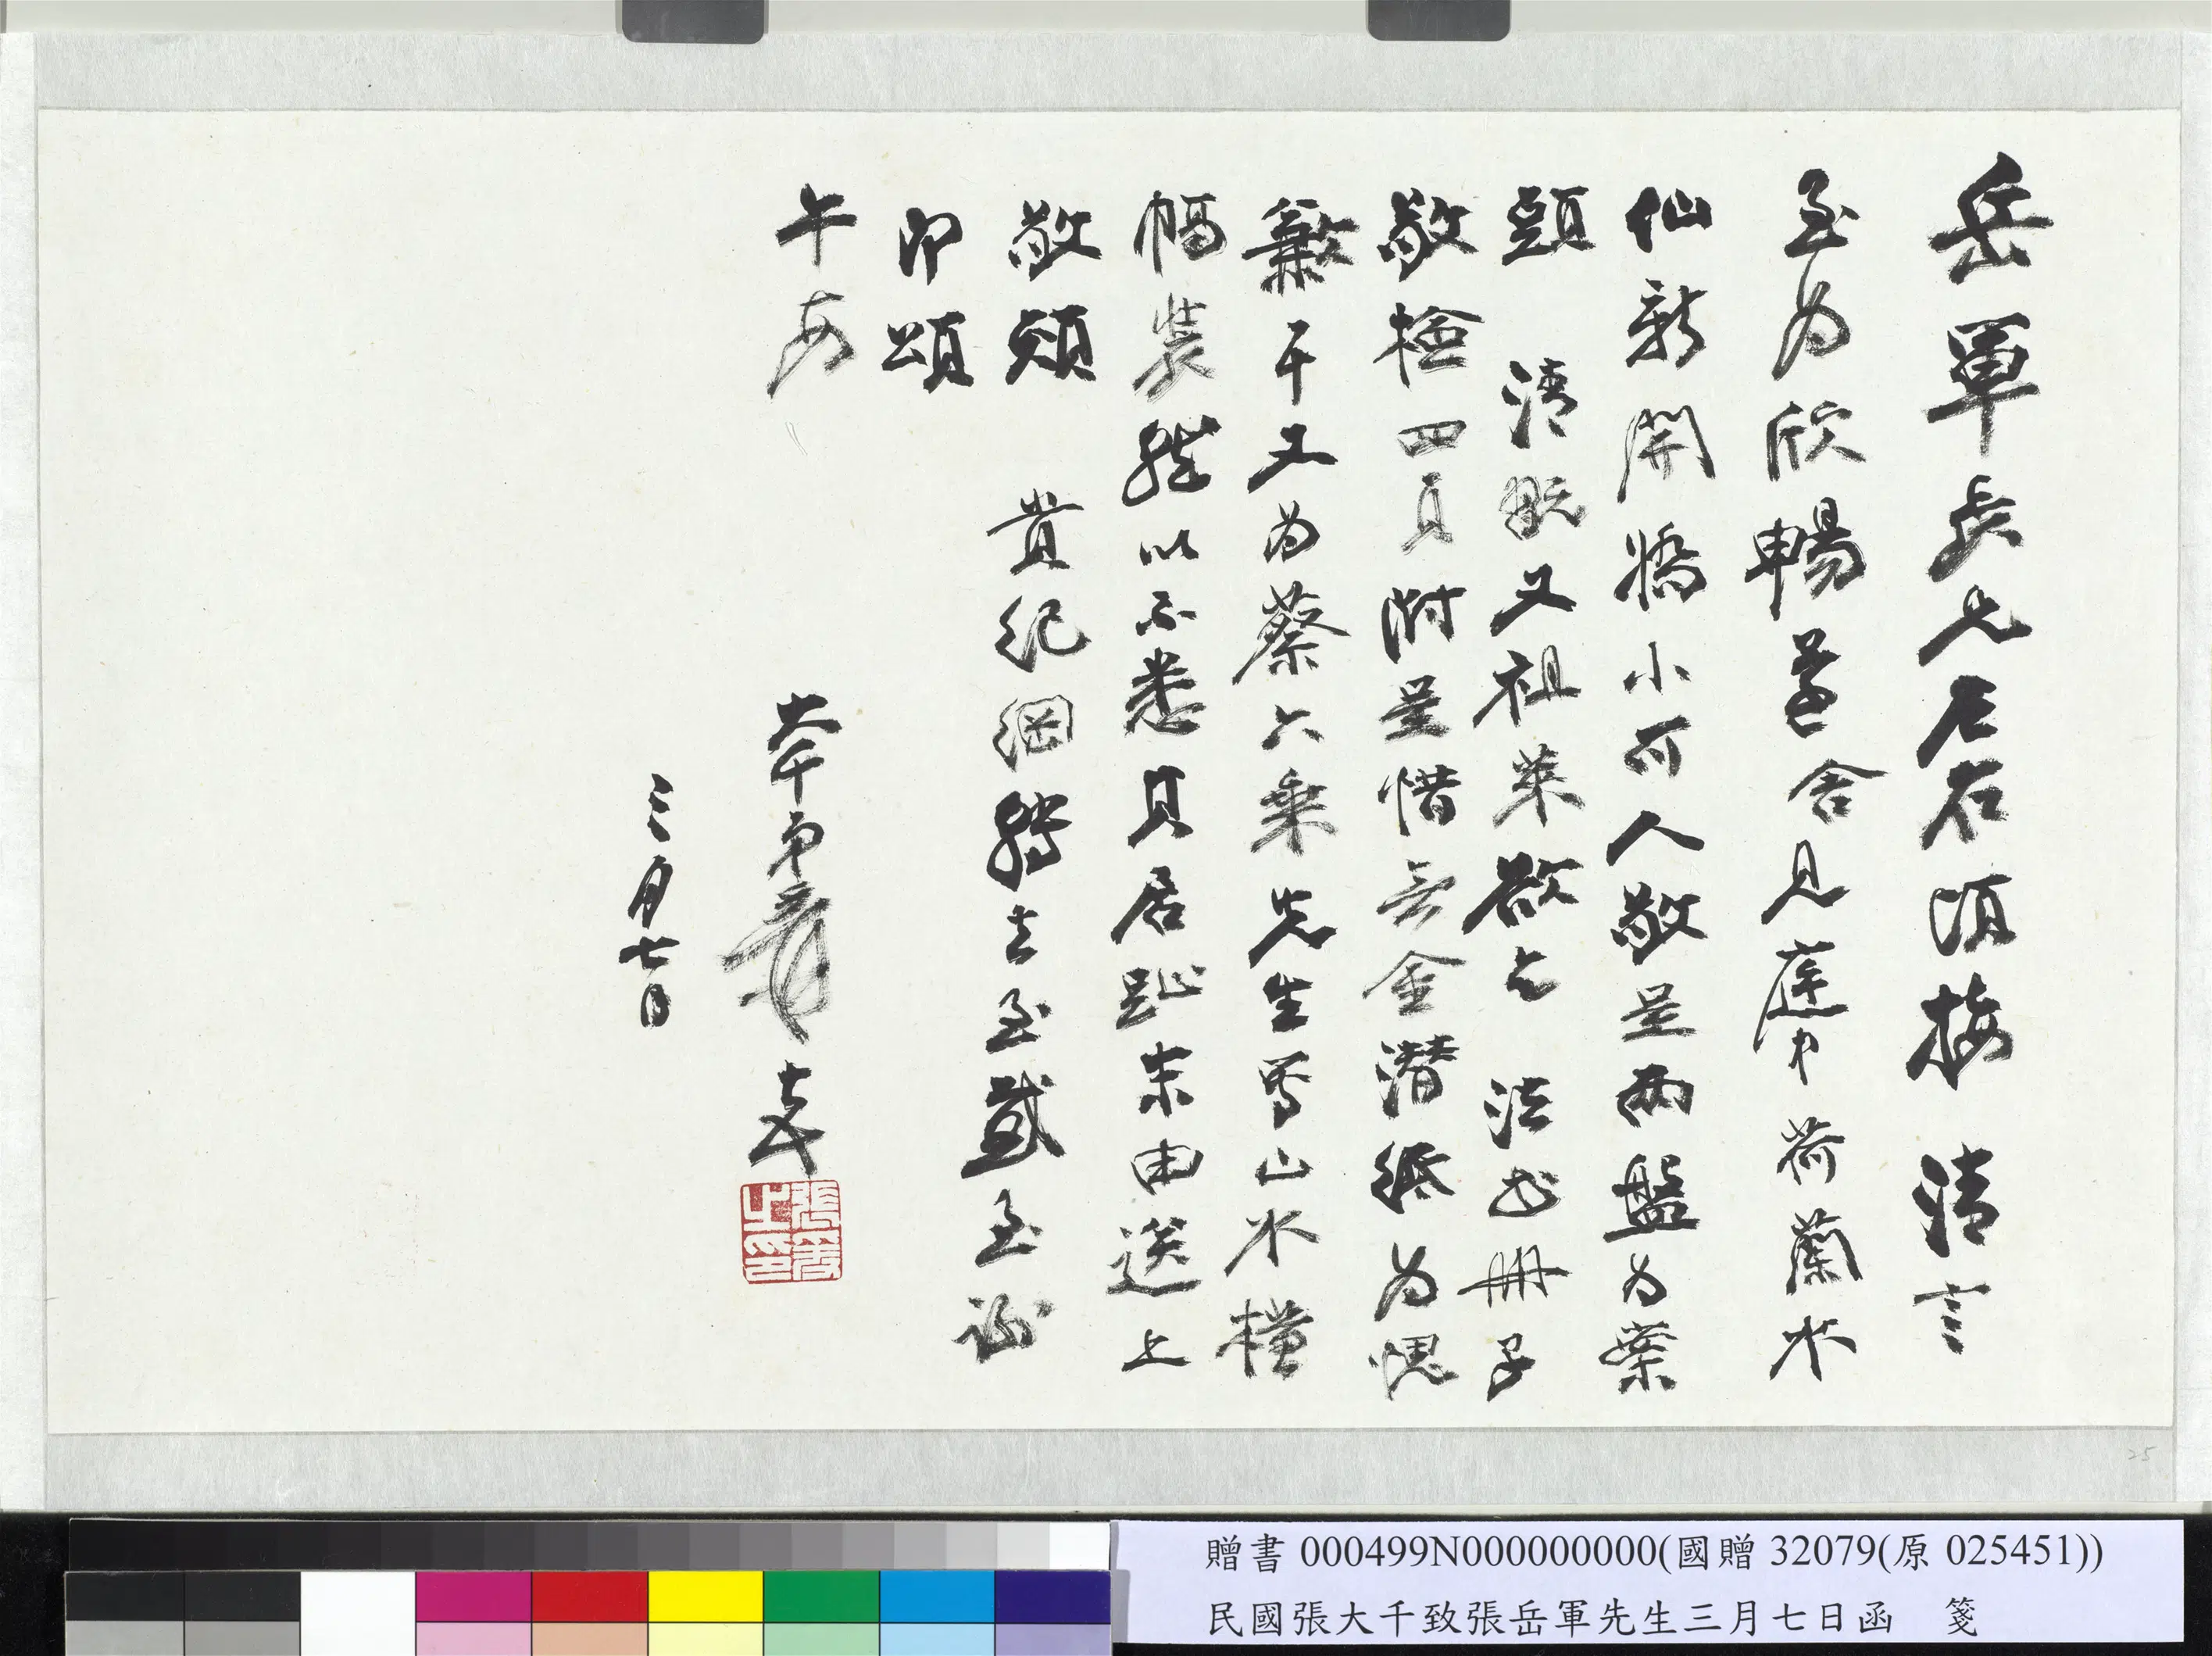 岳軍長兄左右頃接 清言
至為欣暢晉舍見庭中荷蘭水
仙新開矯小可人敬呈兩盤為案
頭 清玩又祖萊欲乞 法書冊子
敬檢四頁附呈惜無金潛紙為愧
歉耳又為蔡六乘先生寫山水橫
幅裝
以不悉其居址未由送上
敬煩 貴紀綱轉去至感至謝
即頌
午安
大千弟爰頓首
三月七日
張爰之印
25
贈書 000499N000000000(國贈 32079(原 025451))
民國張大千致張岳軍先生三月七日函 箋